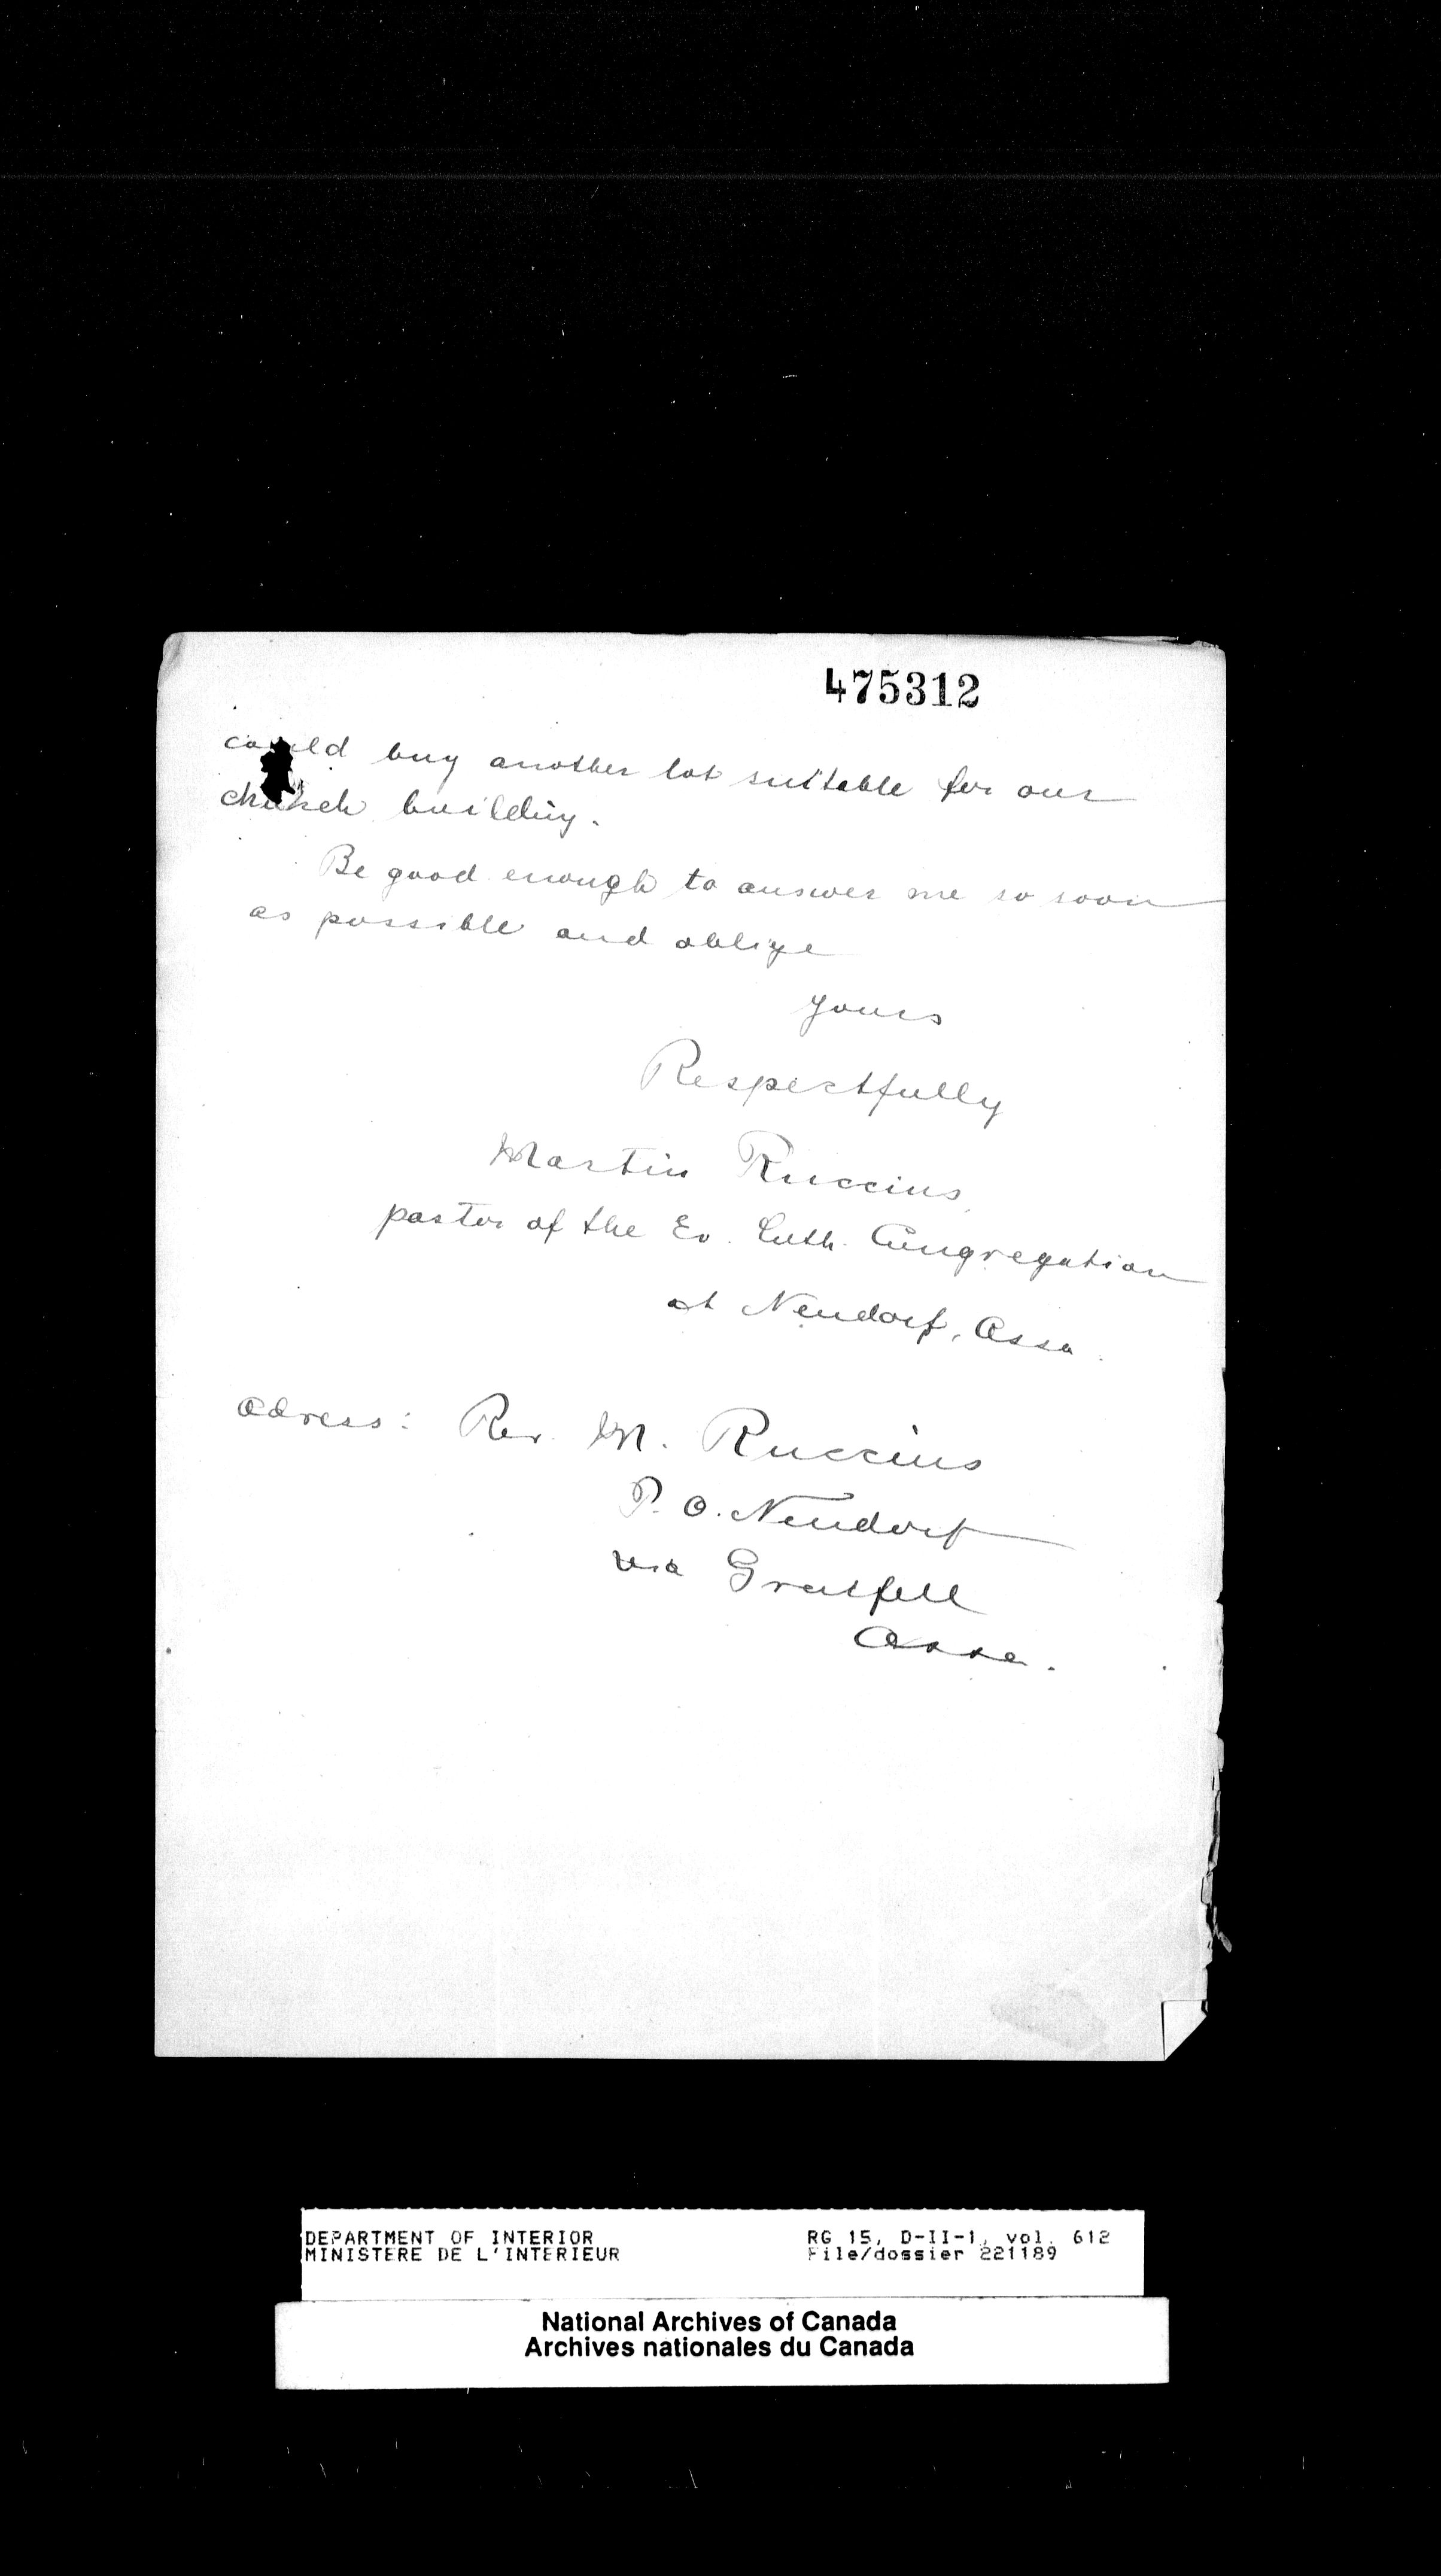 475312
could buy another lot suitable for our
church building.
Be good enough to answer me so soon
as possible and oblige
yours
Respectfully
Martin Ruccius,
pastor of the Ev. Luth. Congregation
at Neudorf, Assa.
Adress: Rev. M. Ruccius
P. O. Neudorf
via Gratfell
Assa.
DEPARTMENT OF INTERIOR RG 15, D-II-1, vol. 612
MINISTERE DE L'INTERIEUR File/dossier 221189
National Archives of Canada
Archives nationales du Canada